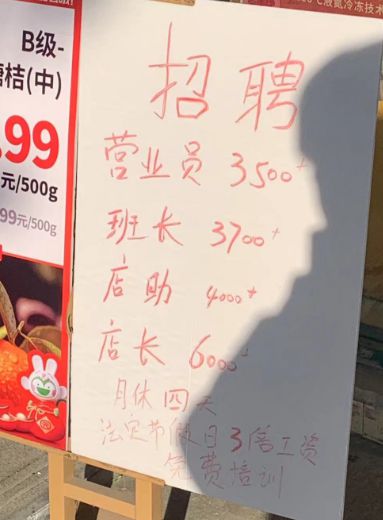 B级-
桔(中)
.99
元/500g
99元/500g
℃液氮冷冻技术
招聘
营业员 3500+
班长 3700+
店助 4000+
店长 6000+
月休四天
法定节假日3倍工资
免费培训